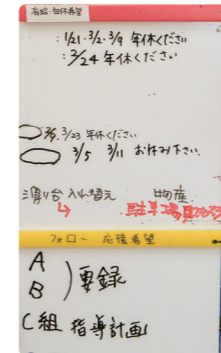 有給・年休希望
:1/21・3/2・3/9 年休ください
:3/24 年休ください
3/23 年休ください
3/5 3/11 お休み下さい
滑り台 入れ替え
物産
↳ 駐車場
フォロー 応援希望
A
B
要録
C組 指導計画